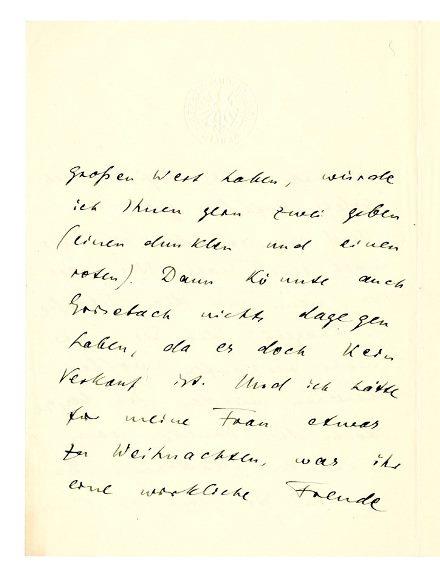 großen Wert haben, würde
ich Ihnen gern zwei geben
(einen dunklen und einen
roten). Dann könnte auch
Grisebach nichts dagegen
haben, da es doch kein
Verkauf ist. Und ich hätte
für meine Frau etwas
zu Weihnachten, was ihr
eine wirkliche Freude